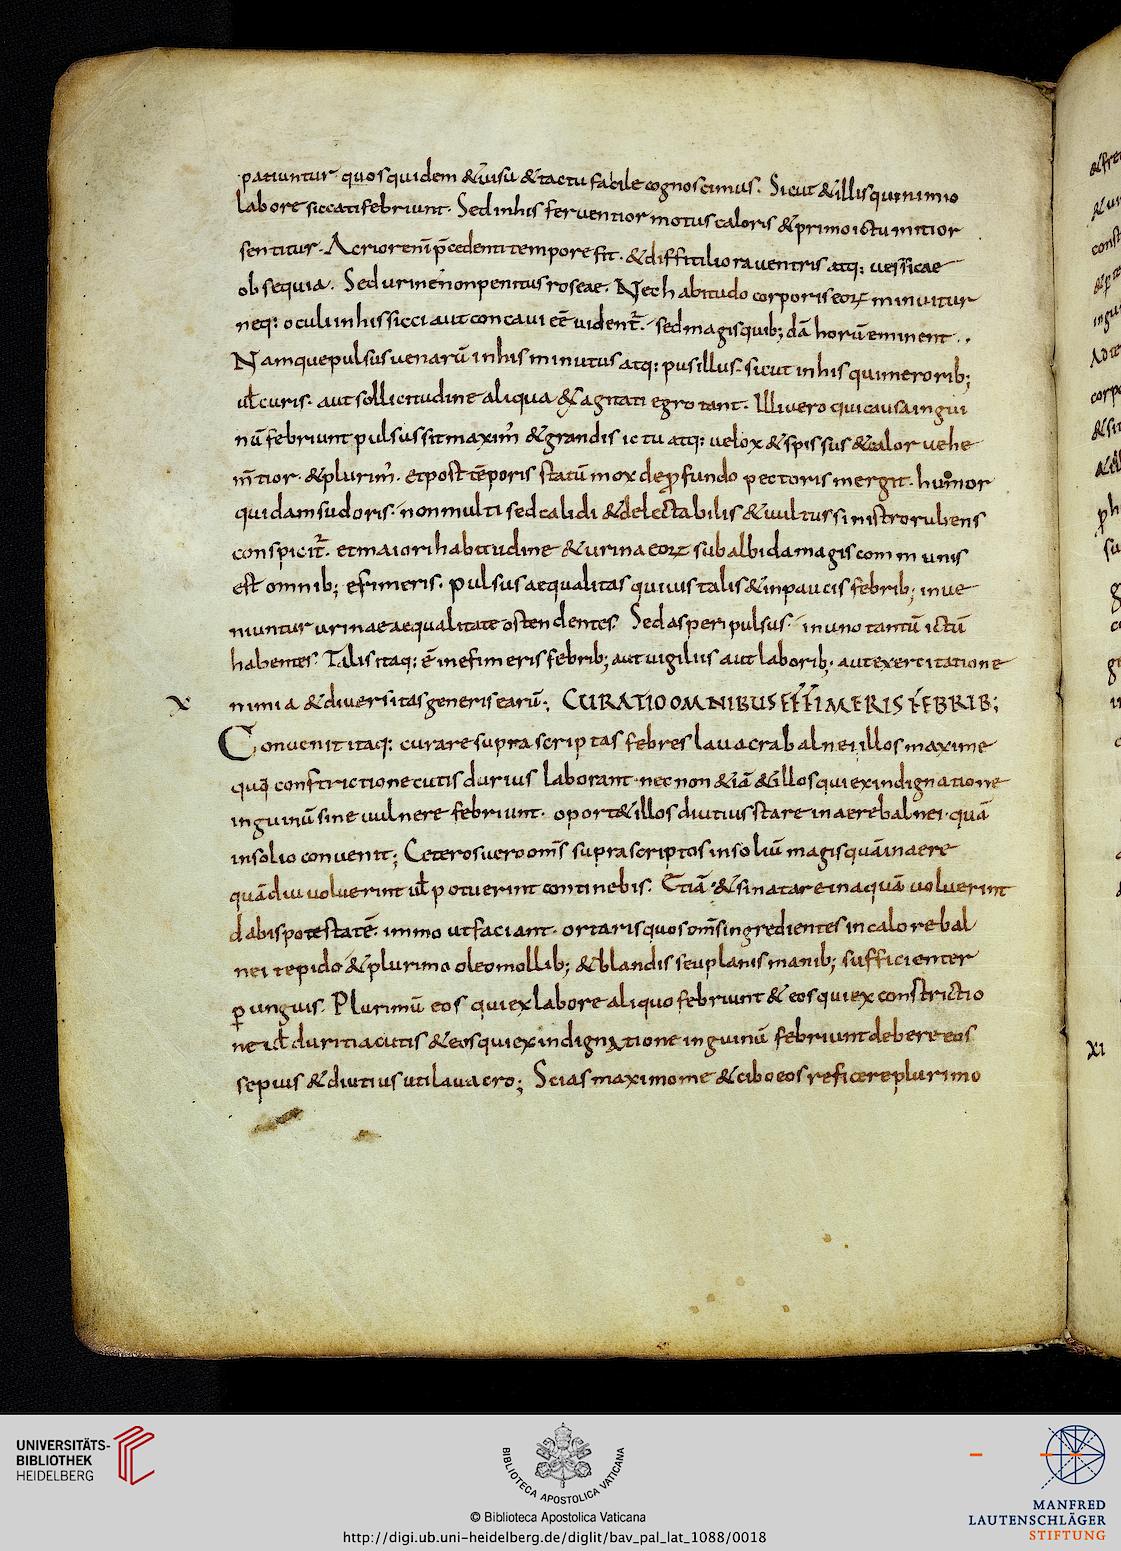 patiuntur. quos quidem & uisu & tactu facile cognoscimus. Sicut & illis qui nimio
labore siccati febriunt. Sed in his feruentior motus caloris & primo ictu mitior
sentitur. Acrior enī p̄cedenti tempore fit. & difficiliora uentris atq; uessicae
obsequia. Sed urinę non penitus roseae. Nec habitudo corporis eorꝝ minuitur
neq; oculi in his sicci aut concaui eē uident̄. sed magis quib;dā horū eminent..
Namque pulsus uenarū in his minutus atq; pusillus. sicut in his qui meroribs;
ul̄ curis. aut sollicitudine aliqua & agitati egrotant. Illi uero qui causa ingui
nū febriunt pulsus fit maxim̄ & grandis ictu atq; uelox & spissus & calor uehe
m̄tior. & plurim̄. et post tēporis statū mox de ꝓfundo pectoris mergit. humor
quidam sudoris. non multi sed calidi & delectabilis & uultus sinistro rubens
conspicit̄. et maiori habitudine & urina eorꝝ subalbida magis communis
est omnib; efimeris. pulsus aequalitas quius talis & in paucis febrib; inue
niuntur urinae aequalitate ostendentes. Sed asperi pulsus. in uno tantū ictū
habentes. Talis itaq; ē in efimeris febrib; aut uigiliis aut laborib; aut exercitatione
X nimia & diuersitas generis earū; CURATIO OMNIBUS EFFIMERIS FEBRIB;
Conuenit itaq; curare supra scriptas febres lauacra balnei illos maxime
qui constrictione cutis durius laborant. nec non & iā & illos qui ex indignatione
inguinū sine uulnere febriunt. oport& illos diutius stare in aere balnei. quā
in solio conuenit; Ceteros uero om̄s suprascriptos in soliū magis quā in aere
quādiu uoluerint ul̄ potuerint continebis. Etiā & si natare in aquā uoluerint
dabis potestatē. immo ut faciant. ortaris quos om̄s ingredientes in calore bal
nei tepido & plurimo oleo mollib; & blandis seu planis manib; sufficienter
ꝑunguis. Plurimū eos qui ex labore aliquo febriunt & eos qui ex constrictio
ne ul̄ duritia cutis & eos qui ex indignatione inguinū febriunt debere eos
sepius & diutius uti lauacro; Scias maximo me & cibo eos reficere plurimo
XI
UNIVERSITÄTS-
BIBLIOTHEK
HEIDELBERG
BIBLIOTECA APOSTOLICA VATICANA
© Biblioteca Apostolica Vaticana
http://digi.ub.uni-heidelberg.de/diglit/bav_pal_lat_1088/0018
MANFRED
LAUTENSCHLÄGER
STIFTUNG